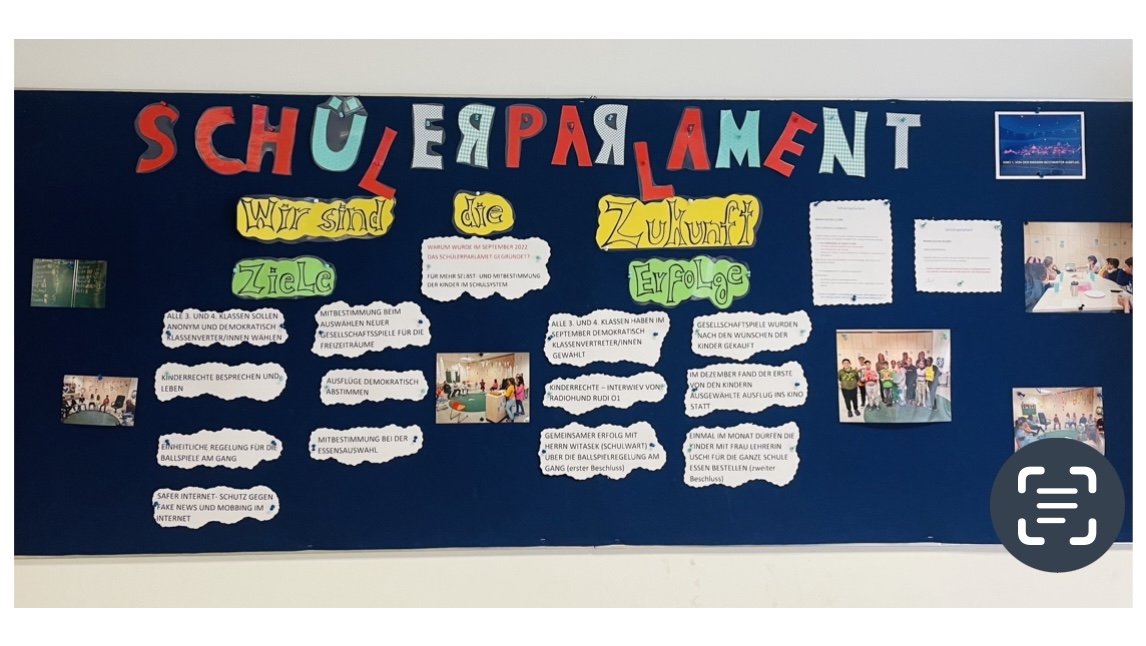 SCHÜLERPARLAMENT
Wir sind die Zukunft
WARUM WURDE IM SEPTEMBER 2022
DAS SCHÜLERPARLAMET GEGRÜNDET?
FÜR MEHR SELBST- UND MITBESTIMMUNG
DER KINDER IM SCHULSYSTEM
Ziele
ALLE 3. UND 4. KLASSEN SOLLEN
ANONYM UND DEMOKRATISCH
KLASSENVERTER/INNEN WÄHLEN
MITBESTIMMUNG BEIM
AUSWÄHLEN NEUER
GESELLSCHAFTSSPIELE FÜR DIE
FREIZEITRÄUME
KINDERRECHTE BESPRECHEN UND
LEBEN
AUSFLÜGE DEMOKRATISCH
ABSTIMMEN
EINHEITLICHE REGELUNG FÜR DIE
BALLSPIELE AM GANG
MITBESTIMMUNG BEI DER
ESSENSAUSWAHL
SAFER INTERNET- SCHUTZ GEGEN
FAKE NEWS UND MOBBING IM
INTERNET
Erfolge
ALLE 3. UND 4. KLASSEN HABEN IM
SEPTEMBER DEMOKRATISCH
KLASSENVERTRETER/INNEN
GEWÄHLT
GESELLSCHAFTSPIELE WURDEN
NACH DEN WÜNSCHEN DER
KINDER GEKAUFT
KINDERRECHTE – INTERWIEV VON
RADIOHUND RUDI O1
IM DEZEMBER FAND DER ERSTE
VON DEN KINDERN
AUSGEWÄHLTE AUSFLUG INS KINO
STATT
GEMEINSAMER ERFOLG MIT
HERRN WITASEK (SCHULWART)
ÜBER DIE BALLSPIELREGELUNG AM
GANG (erster Beschluss)
EINMAL IM MONAT DÜRFEN DIE
KINDER MIT FRAU LEHRERIN
USCHI FÜR DIE GANZE SCHULE
ESSEN BESTELLEN (zweiter
Beschluss)